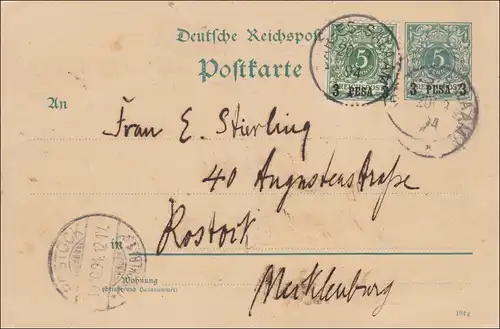 Deutsche Reichspost
Postkarte
5
3 PESA 3
5
3 PESA 3
DAR-ES-SALAAM
94
An
Frau E. Stierling
40 Augustenstraße
Rostock
in
Wohnung
(Straße und Hausnummer)
Mecklenburg